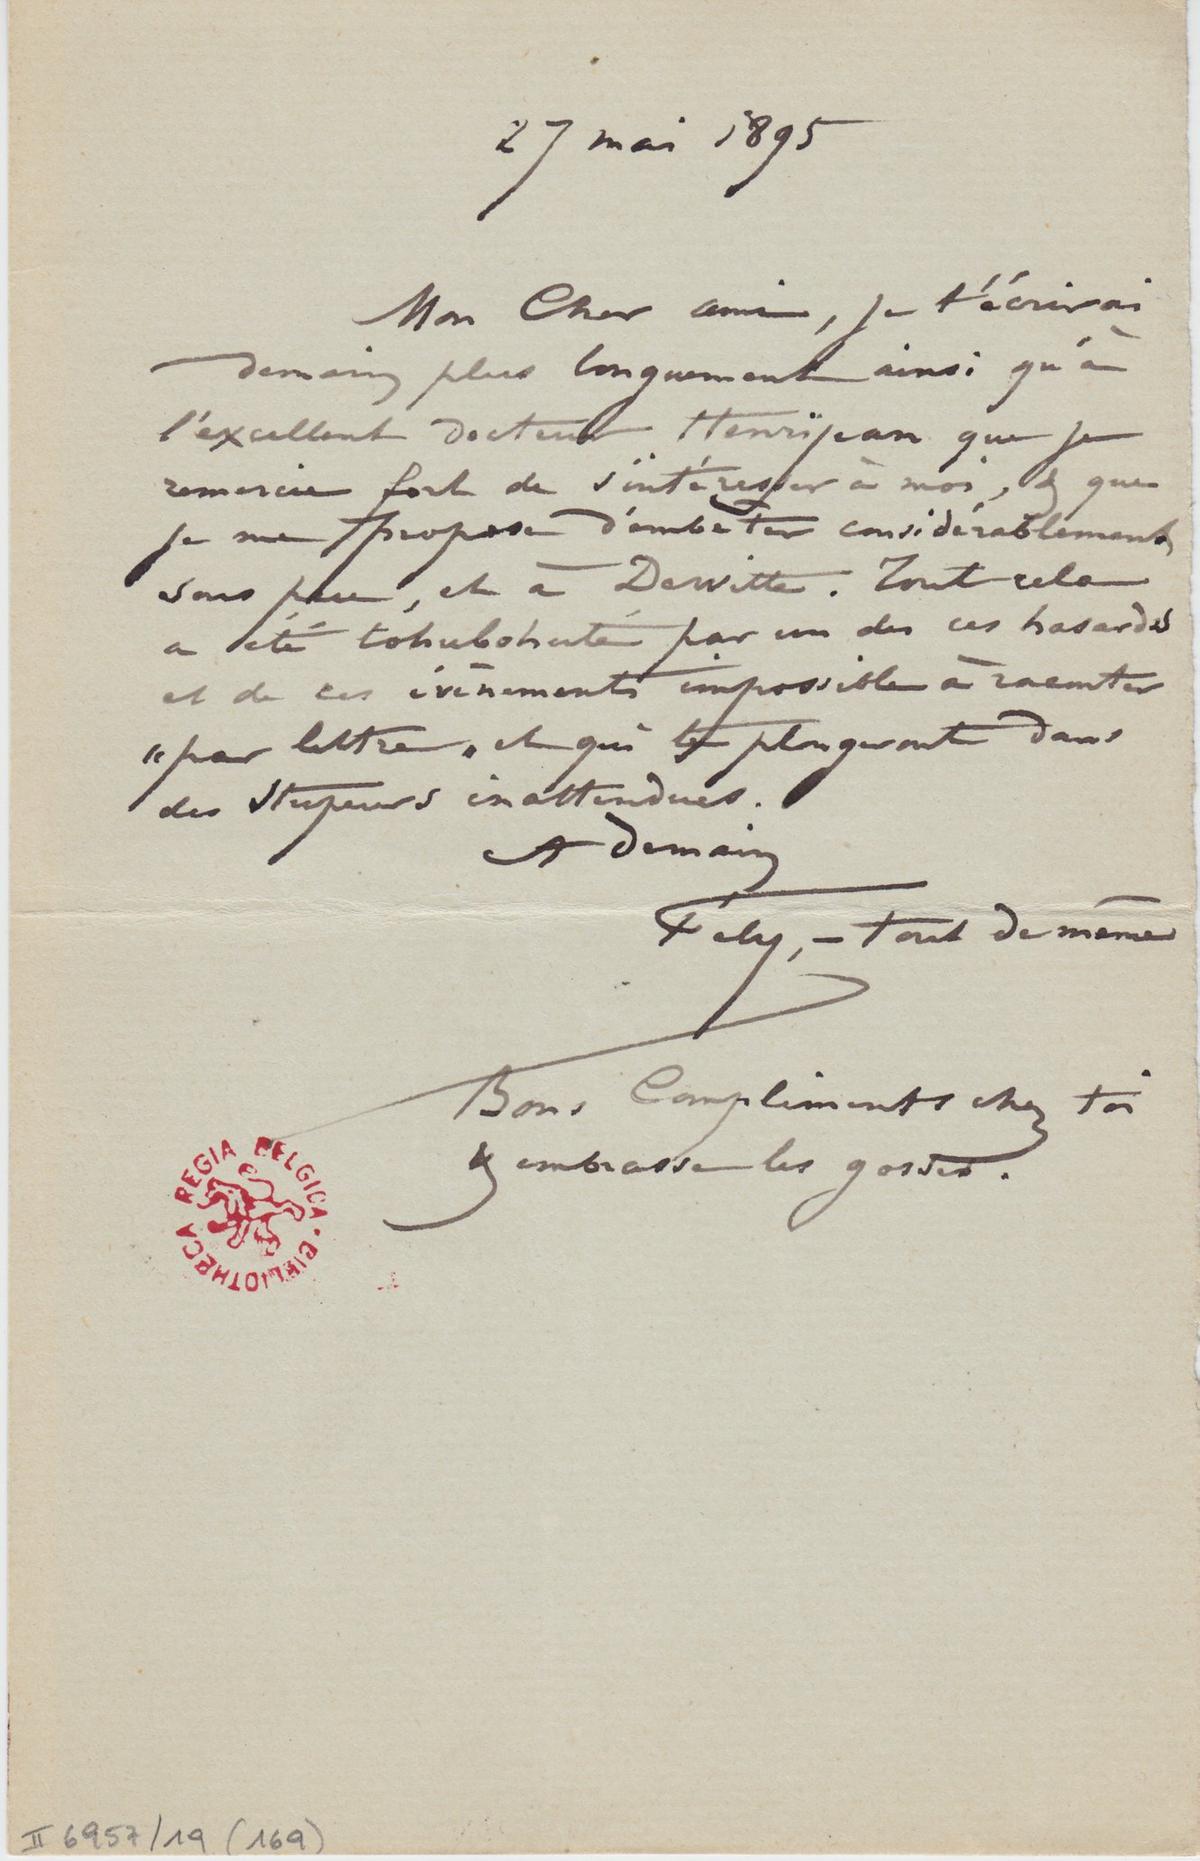 27 mai 1895
Mon Cher ami, je t'écrirai
demain plus longuement ainsi qu'à
l'excellent docteur Henrijean que je
remercie fort de s'intéresser à moi, & que
je me propose d'embêter considérablement
sous peu, et à Dewitte. Tout cela
a été tohubohuté par un des ces hasards
et de ces évènements impossible à raconter
"par lettre" et qui te plongeront dans
des stupeurs inattendues.
A demain
Fély, – tout de même
Bons Compliments chez toi
& embrasse les gosses.
BIBLIOTHECA REGIA BELGICA
II 6957/19 (169)